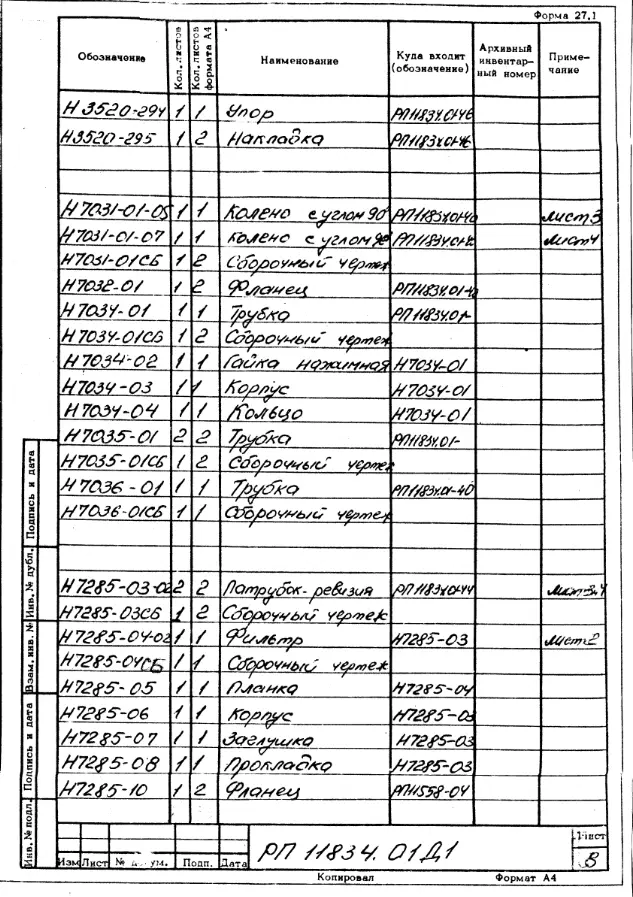 Форма 27.1
Обозначение Кол. листов Кол. листов формата А4 Наименование Куда входит (обозначение) Архивный инвентарный номер Примечание
Н3520-294 1 1 Упор РП11834.01-46
Н3520-295 1 2 Накладка РП11834.01-46
Н7031-01-05 1 1 Колено с углом 90° Лист3
Н7031-01-07 1 1 Колено с углом 90° Лист4
Н7031-01СБ 1 2 Сборочный чертеж
Н7032-01 1 2 Фланец РП11834.01-40
Н7034-01 1 1 Трубка РП11834.01-
Н7034-01СБ 1 2 Сборочный чертеж
Н7034-02 1 1 Гайка нажимная Н7034-01
Н7034-03 1 1 Корпус Н7034-01
Н7034-04 1 1 Кольцо Н7034-01
Н7035-01 2 2 Трубка РП11834.01-
Н7035-01СБ 1 2 Сборочный чертеж
Н7036-01 1 1 Трубка РП11834.01-40
Н7036-01СБ 1 1 Сборочный чертеж
Н7285-03-02 2 2 Патрубок-ревизия РП11834.01-44
Н7285-03СБ 1 2 Сборочный чертеж
Н7285-04-02 1 1 Фильтр Н7285-03 Лист2
Н7285-04СБ 1 1 Сборочный чертеж
Н7285-05 1 1 Планка Н7285-04
Н7285-06 1 1 Корпус Н7285-03
Н7285-07 1 1 Заглушка Н7285-03
Н7285-08 1 1 Прокладка Н7285-03
Н7285-10 1 2 Фланец РП11558-04
Инв. № подл. Подпись и дата Взам. инв. № Инв. № дубл. Подпись и дата
РП 11834.01Д1
Лист
8
Изм Лист № Подп. Дата
Копировал Формат А4